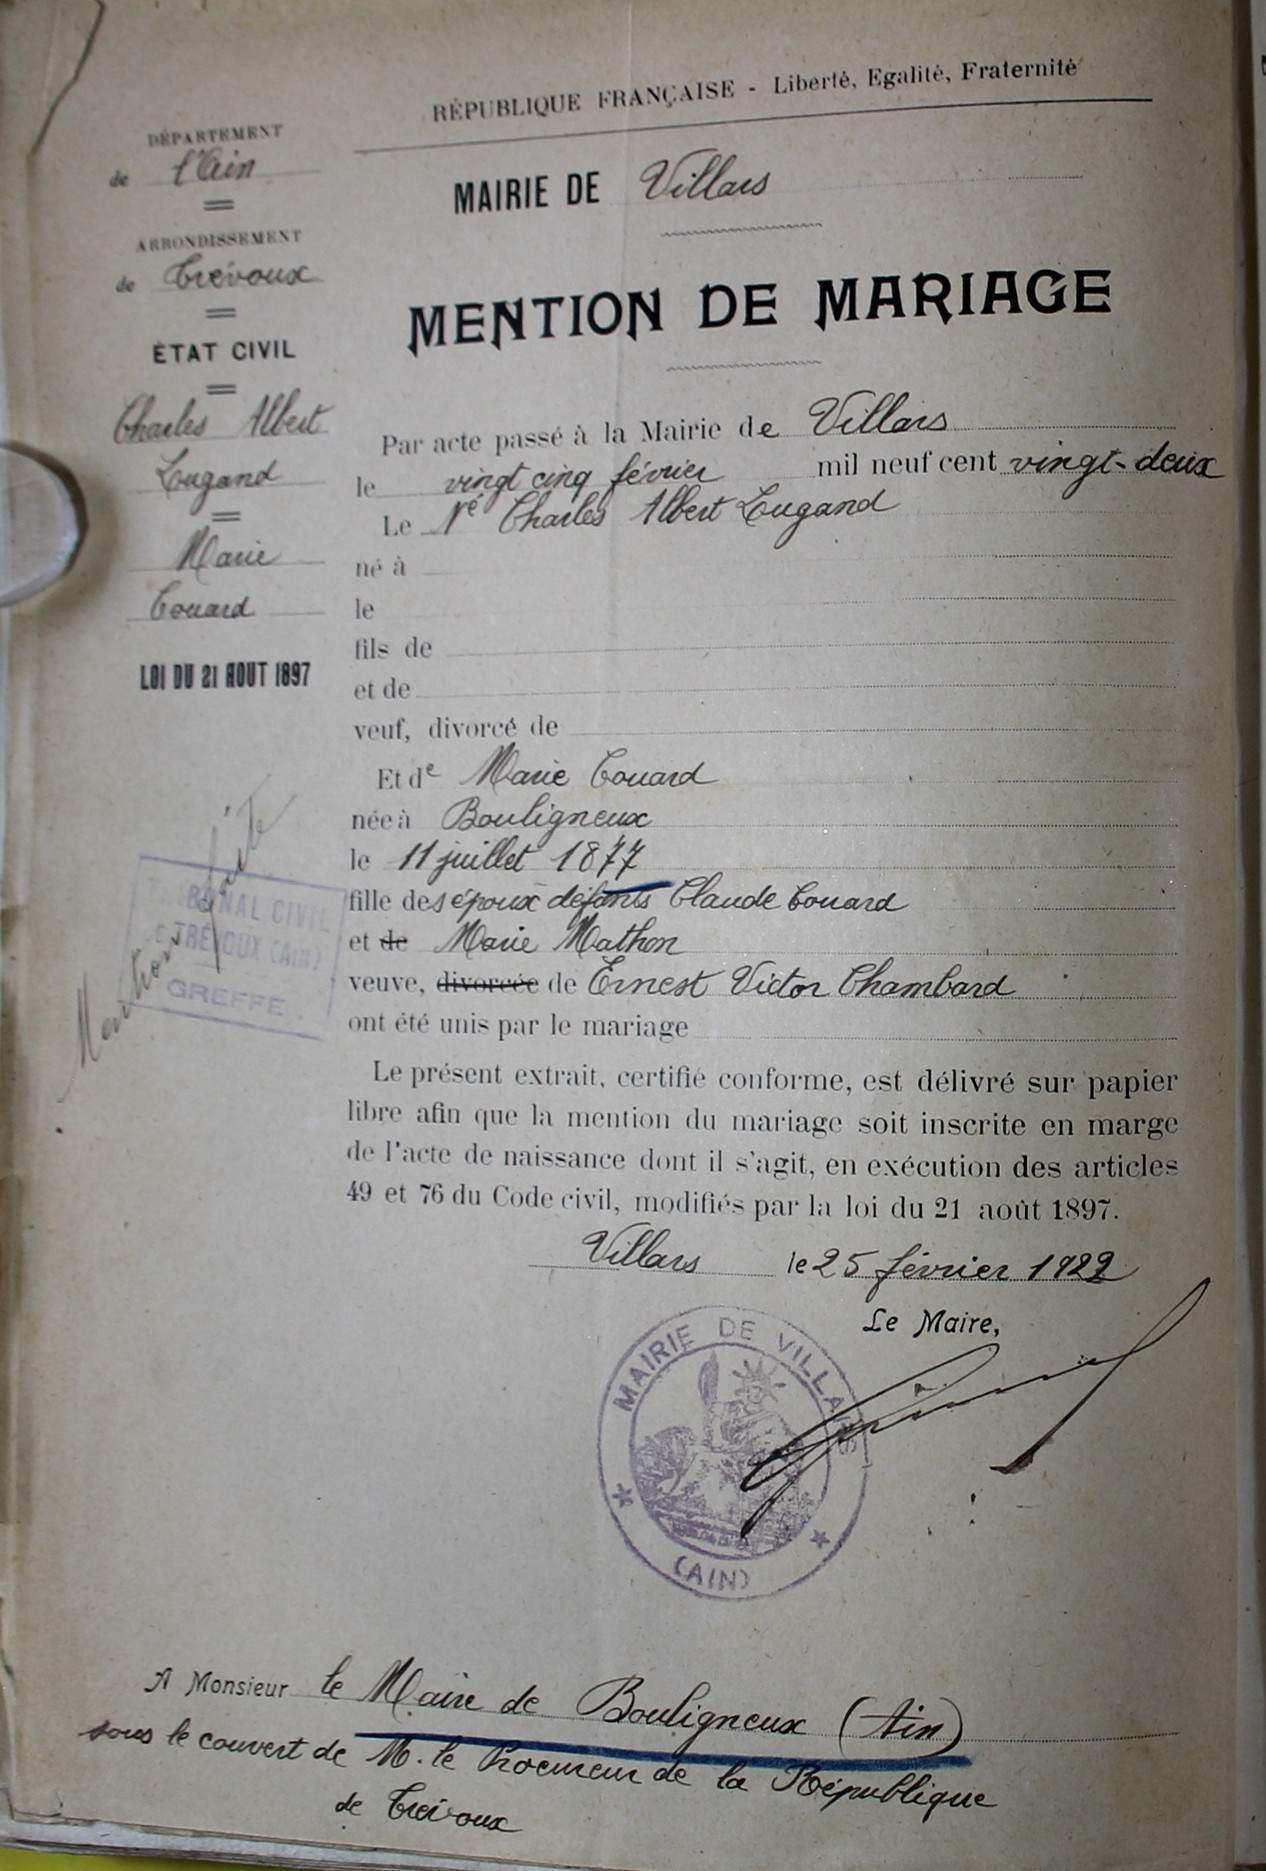 RÉPUBLIQUE FRANÇAISE - Liberté, Egalité, Fraternité
DÉPARTEMENT
de l'Ain
ARRONDISSEMENT
de Trévoux
ÉTAT CIVIL
Charles Albert
Lugand
Marie
Couard
LOI DU 21 AOUT 1897
Mention faite
TRIBUNAL CIVIL
de TRÉVOUX (AIN)
GREFFE
MAIRIE DE Villars
MENTION DE MARIAGE
Par acte passé à la Mairie de Villars
le vingt cinq février mil neuf cent vingt-deux
Le Né Charles Albert Lugand
né à
le
fils de
et de
veuf, divorcé de
Et de Marie Couard
née à Bouligneux
le 11 juillet 1877
fille des époux défunts Claude Couard
et de Marie Mathon
veuve, divorcée de Ernest Victor Chambard
ont été unis par le mariage
Le présent extrait, certifié conforme, est délivré sur papier
libre afin que la mention du mariage soit inscrite en marge
de l'acte de naissance dont il s'agit, en exécution des articles
49 et 76 du Code civil, modifiés par la loi du 21 août 1897.
Villars le 25 février 1922
Le Maire,
MAIRIE DE VILLARS
(AIN)
A Monsieur le Maire de Bouligneux (Ain)
sous le couvert de M. le Procureur de la République
de Trévoux